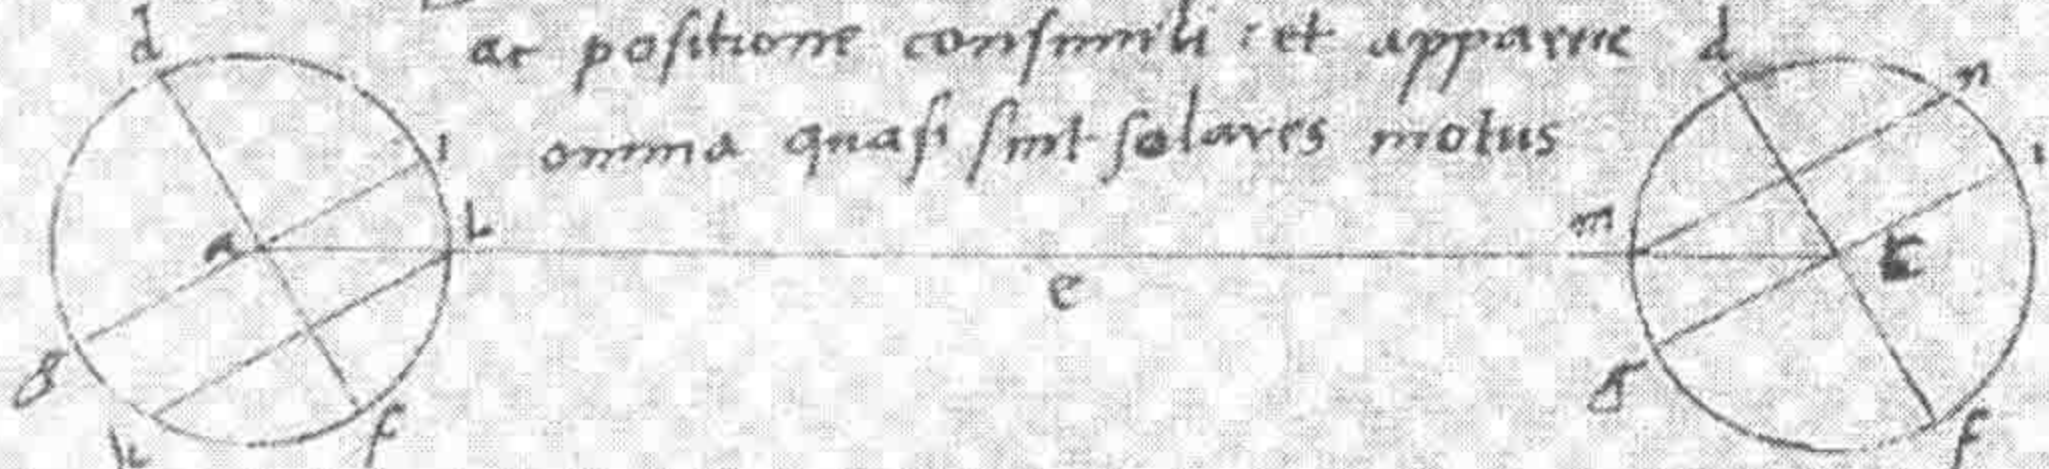 d ac positione consimili : et apparere d n
i omnia quasi sint solares motus i
a L m
e
g g
f f